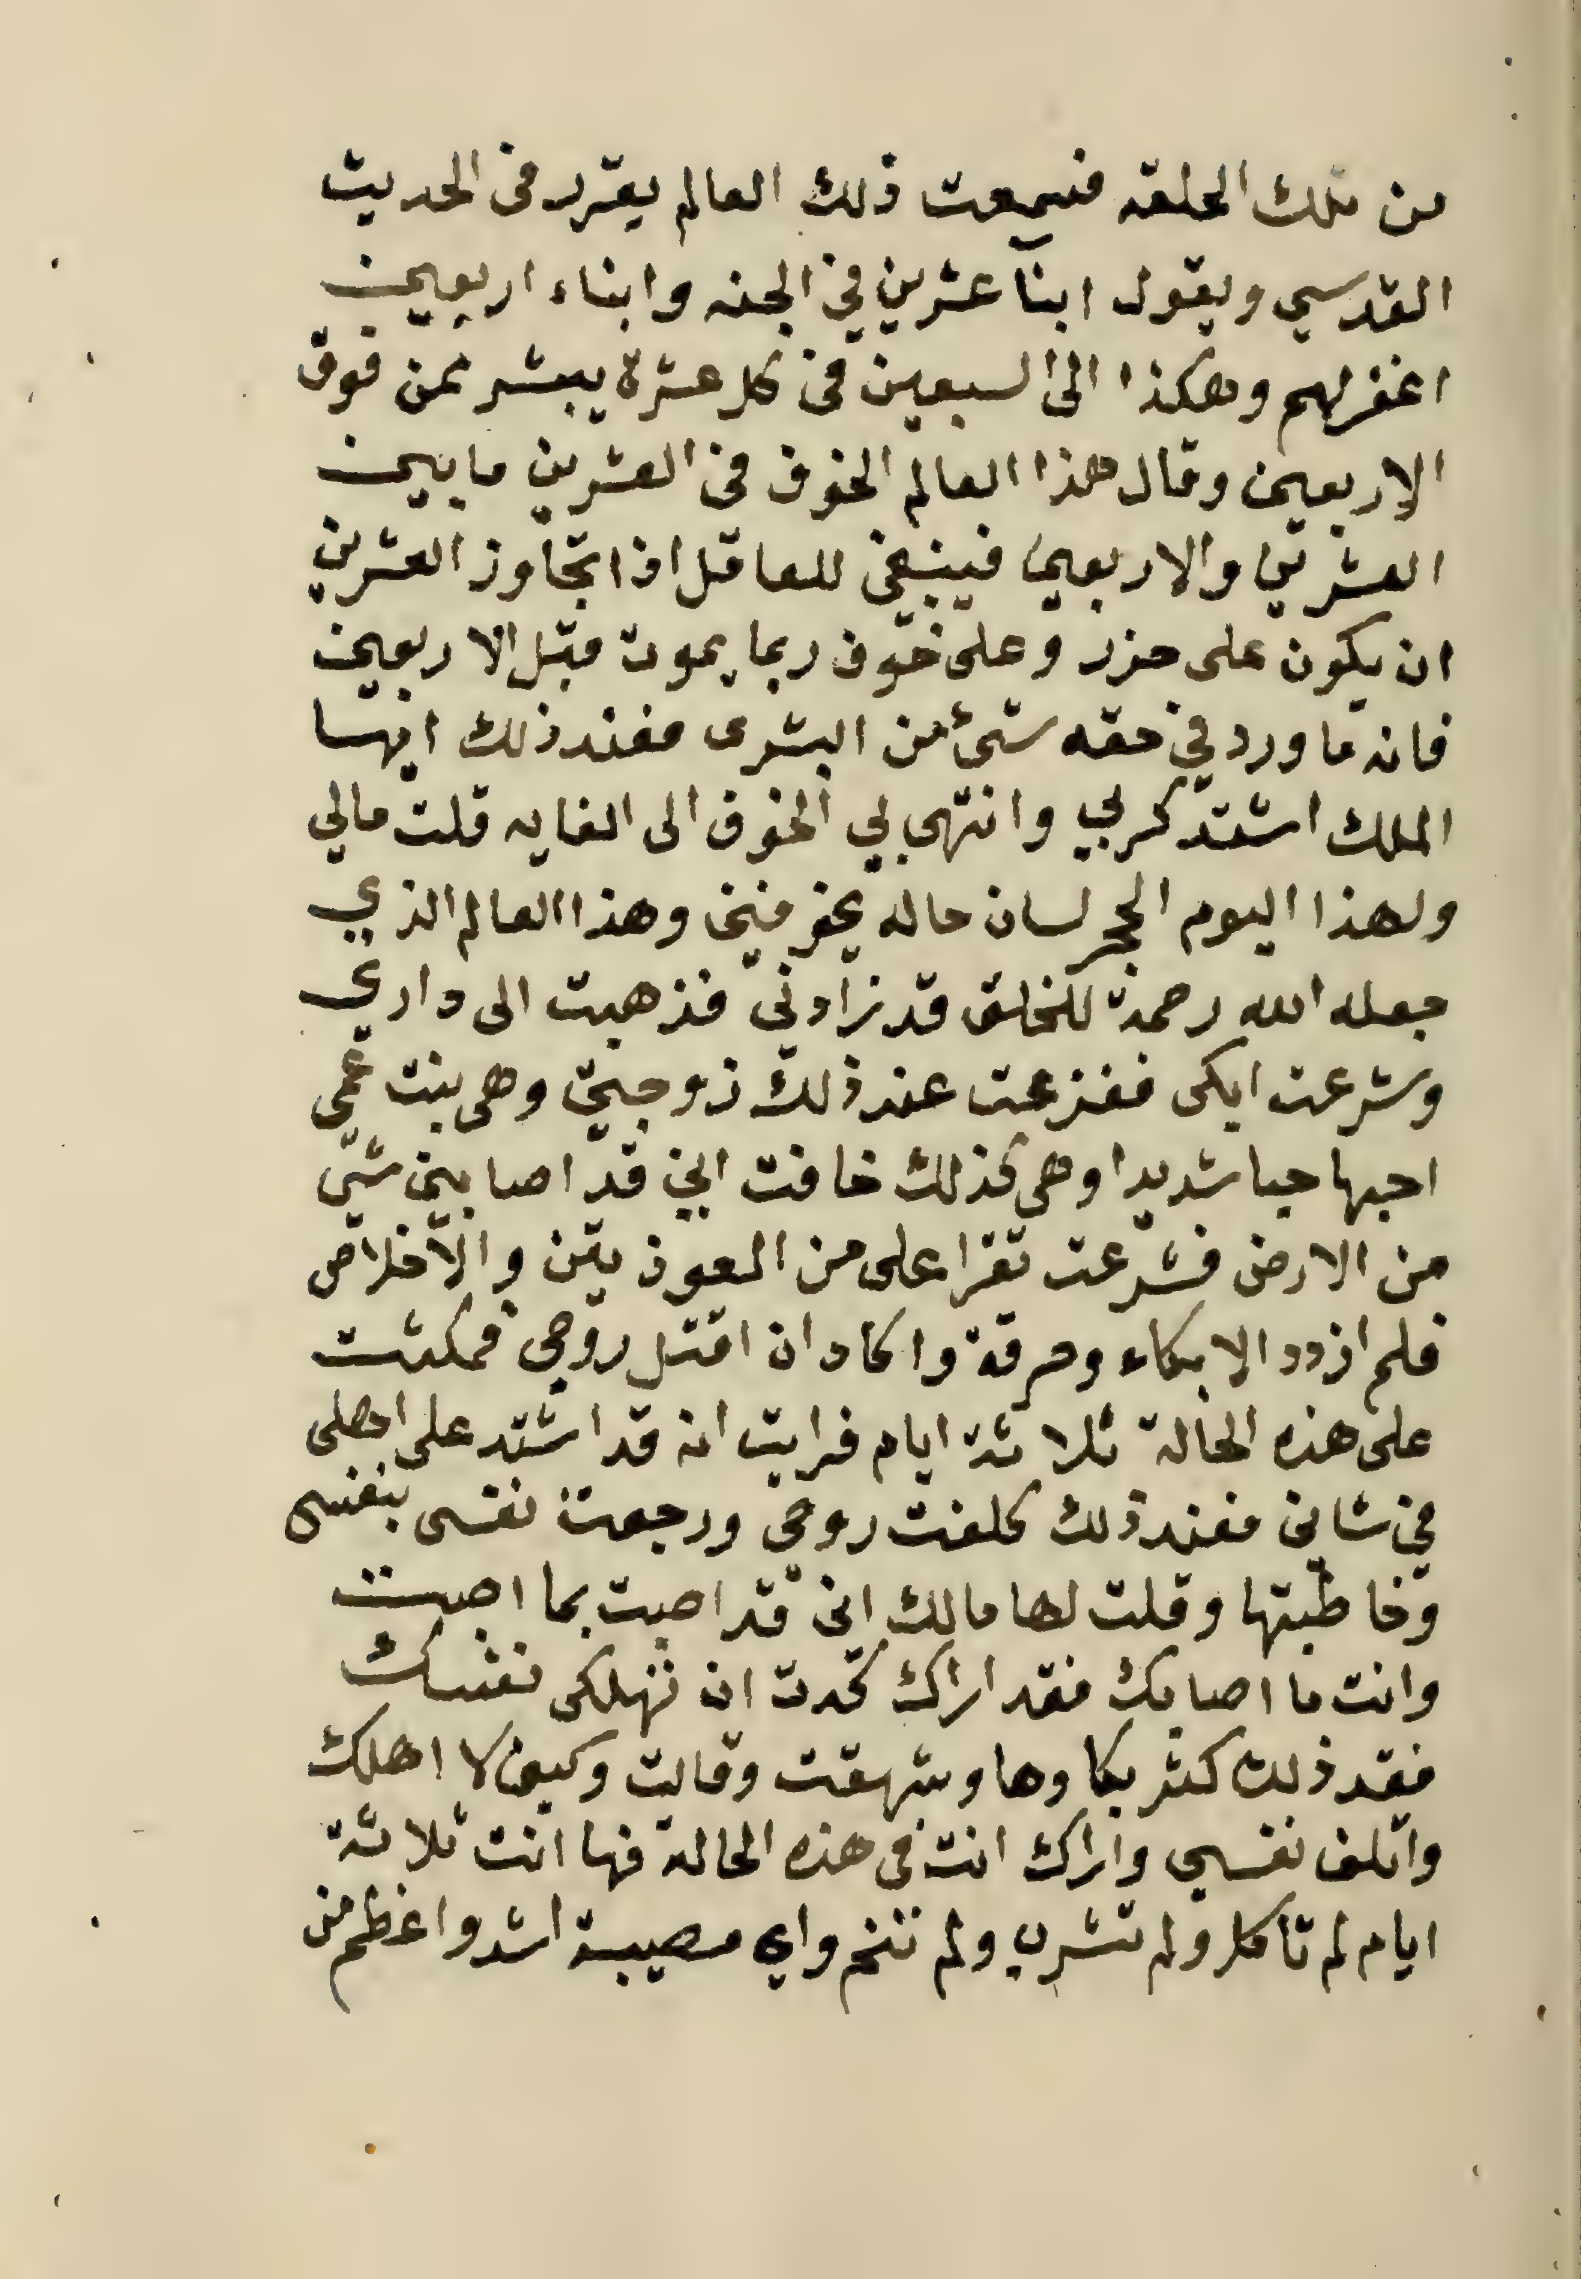 من تلك الحلقه فسمعت ذلك العالم يقرر فى الحديث
القدسي ويقول ابنآ عشرين في الجنه وابناء اربعين
اغفر لهم وهكذا الى السبعين فى كل عشرة يبشر لمن فوق
الاربعين وقال هذا العالم الخوف فى العشرين مابين
العشرين والاربعين فينبغى للعاقل اذا تجاوز العشرين
ان يكون على حزر وعلى خوف ربما يموت قبل الاربعين
فانه ما ورد في حقه شئ من البشرى فعند ذلك ايها
الملك اشتد كربي وانتهى بي الخوف الى الغايه قلت مالي
ولهذا اليوم الحجر لسان حاله يخوفنى وهذا العالم الذي
جعله الله رحمة للخلق قد زادنى فذهبت الى داري
وشرعت ابكى ففزعت عند ذلك زوجتى وهى بنت عمى
احبها حبا شديدا وهى كذلك خافت انى قد اصابنى شى
من الارض فشرعت تقرا على من العوذيتين والاخلاص
فلم ازدد الا بكاء وحرقة واكاد ان اقتل روحى فمكثت
على هذه الحالة ثلاثة ايام فرايت انه قد اشتد على اهلى
في شانى فعند ذلك كلفت روحى ورجعت نفسى بنفسى
وخاطبتها وقلت لها مالك انى قد اصبت بما اصبت
وانت ما اصابك فقد اراك كدت ان تهلكى نفسك
فقد ذلك كثر بكاوها وشهقت وقالت وكيف لا اهلك
واتلف نفسي واراك انت فى هذه الحالة فها انت ثلاثة
ايام لم تاكل ولم تشرب ولم تنم واي مصيبة اشد واعظم من